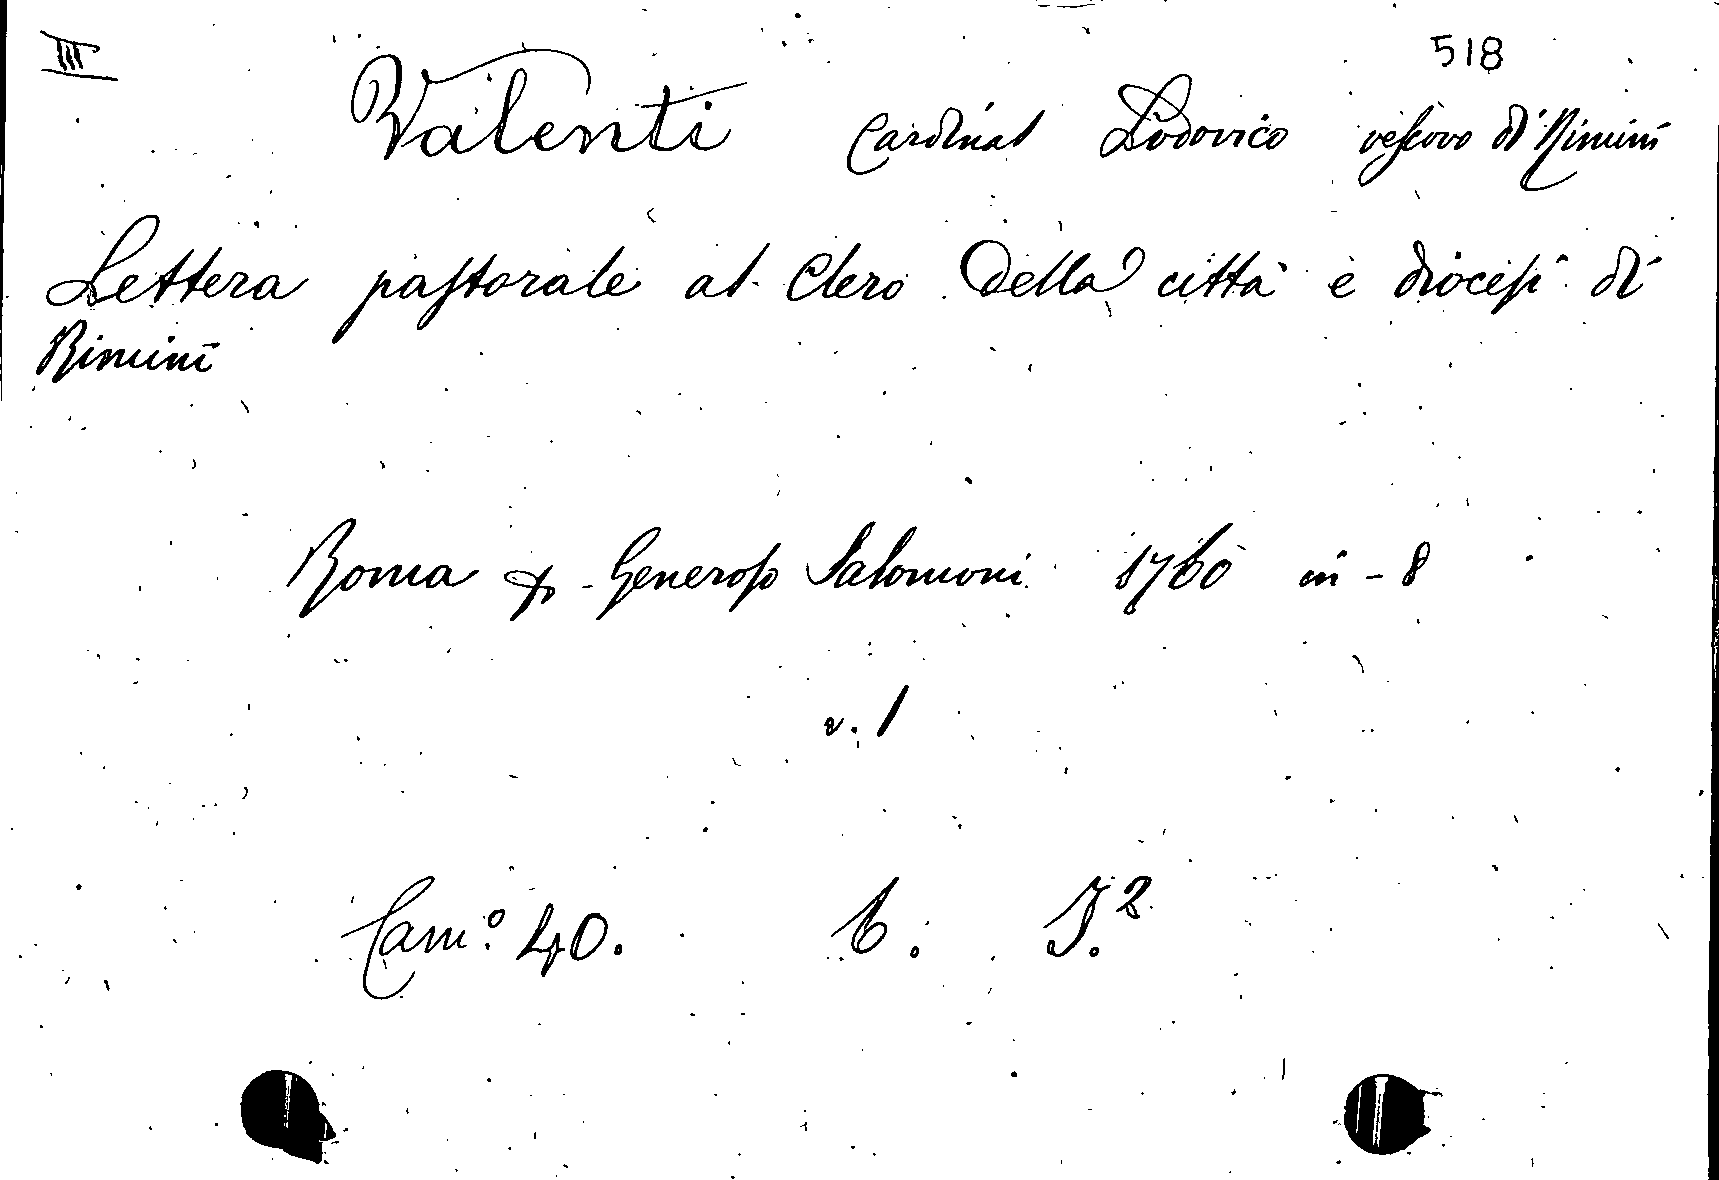 III 518
Valenti Cardinal Lodovico vescovo di Rimini
Lettera pastorale al Clero della città e diocesi di
Rimini
Roma Generoso Salomoni 1760 in-8
v. 1
Cam.º 40. b. I.2